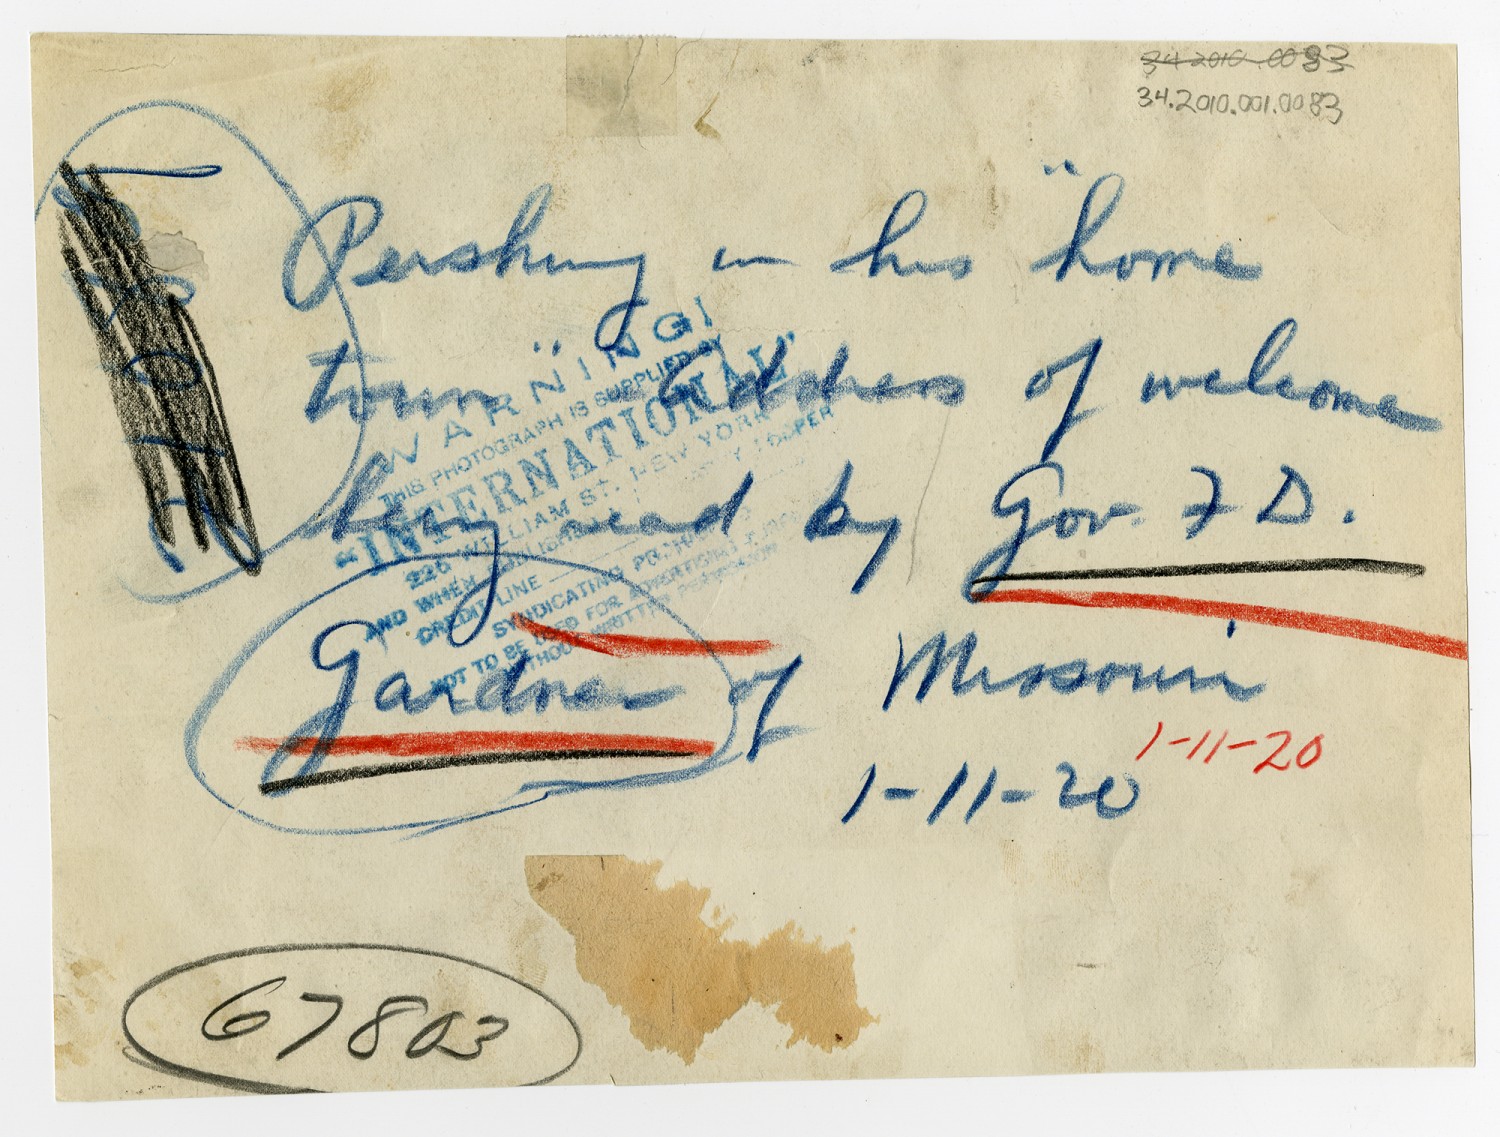 34.2010.0083
34.2010.001.0083
Pershing in his "home
town" Address of welcome
being read by Gov. F D.
Gardner of Missouri
1-11-20
1-11-20
WARNING!
THIS PHOTOGRAPH IS SUPPLIED BY
"INTERNATIONAL"
226 WILLIAM ST. NEW YORK
AND WHEN PUBLISHED
CREDIT LINE
SYNDICATING PROHIBITED
NOT TO BE USED FOR ADVERTISING
WITHOUT WRITTEN PERMISSION
67803